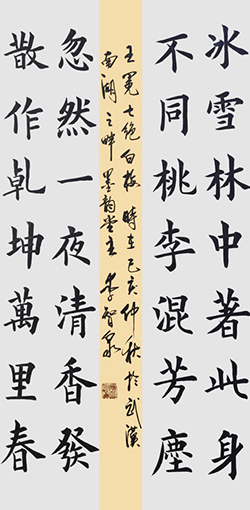 冰雪林中著此身
不同桃李混芳塵
忽然一夜清香發
散作乹坤萬里春
王冕七绝白梅 時在己亥仲秋於武漢
南湖之畔墨韵堂主 李智泉